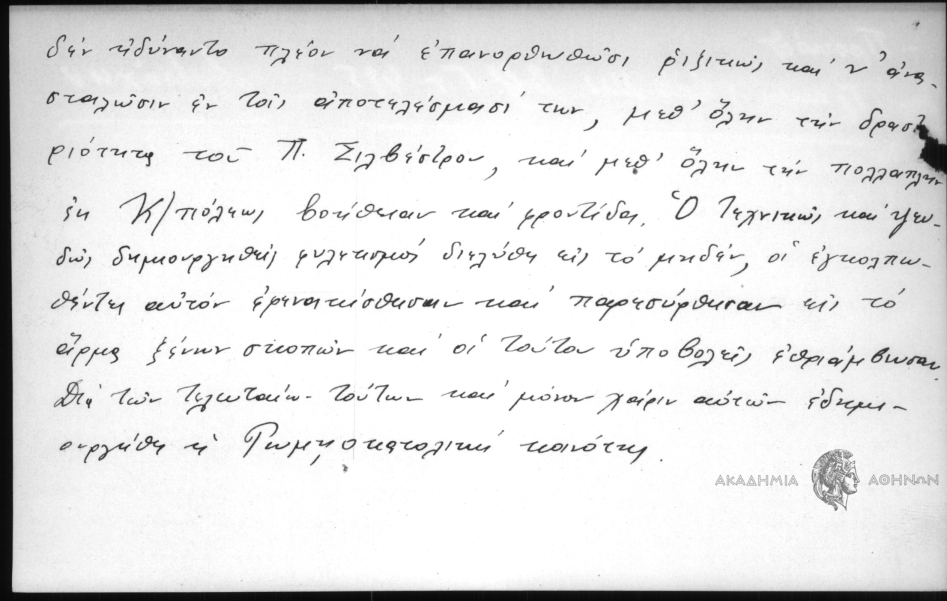 δέν ἠδύναντο πλέον νά ἐπανορθωθῶσι ριζικῶς καί ν' ἀνα-
σταλῶσιν ἐν τοῖς ἀποτελέσμασί των, μεθ' ὅλην τήν δραστη
ριότητα τοῦ Π. Σιλβέστρου, καί μεθ' ὅλην τήν πολλαπλῆν
ἐκ Κ/πόλεως βοήθειαν καί φροντίδα. Ὁ τεχνικῶς καί ψευ-
δῶς δημιουργηθείς φυλετισμός διελύθη εἰς τό μηδέν, οἱ ἐγκολπω-
θέντες αὐτόν ἐφενακίσθησαν καί παρεσύρθησαν εἰς τό
ἅρμα ξένων σκοπῶν καί οἱ τούτου ὑποβολεῖς ἐθριάμβευσαν.
Διά τῶν τελευταίων τούτων καί μόνον χάριν αὐτῶν ἐδημι-
ουργήθη ἡ Ρωμηοκαθολική κοινότης.
ΑΚΑΔΗΜΙΑ ΑΘΗΝΩΝ